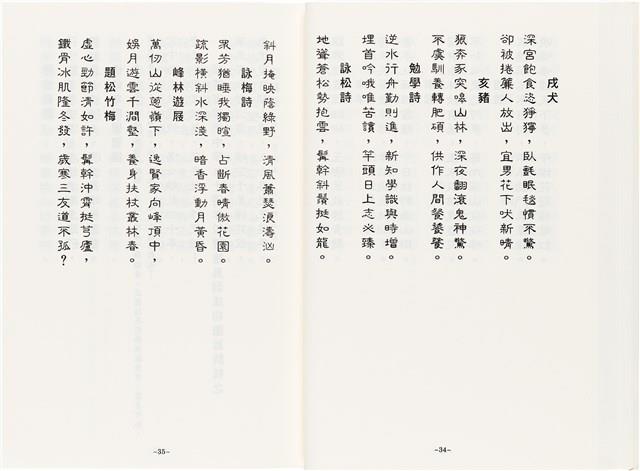 戌犬
深宮飽食恣猙獰，臥氈眠毯慣不驚。
卻被捲簾人放出，宜男花下吠新晴。
亥豬
狼奔豕突嗥山林，深夜翻滾鬼神驚。
不虞馴養轉肥碩，供作人間饕餮餐。
勉學詩
逆水行舟勤則進，新知學識與時增。
埋首吟哦唯苦讀，竿頭日上志必臻。
詠松詩
地聳蒼松勢抱雲，鬣幹斜鬚挺如龍。
-34-
斜月掩映蔭綠野，清風蕭瑟浪濤洶。
詠梅詩
眾芳猶睡我獨暄，占斷春晴傲花園。
疏影橫斜水深淺，暗香浮動月黃昏。
峰林遊展
萬仞山從蔥嶺下，逸賢家向峰頂中，
娛月遊雲千澗壑，養身扶杖叢林春。
題松竹梅
虛心勁節清如許，鬣幹沖霄挺芎廬，
鐵骨冰肌隆冬發，歲寒三友道不孤？
-35-